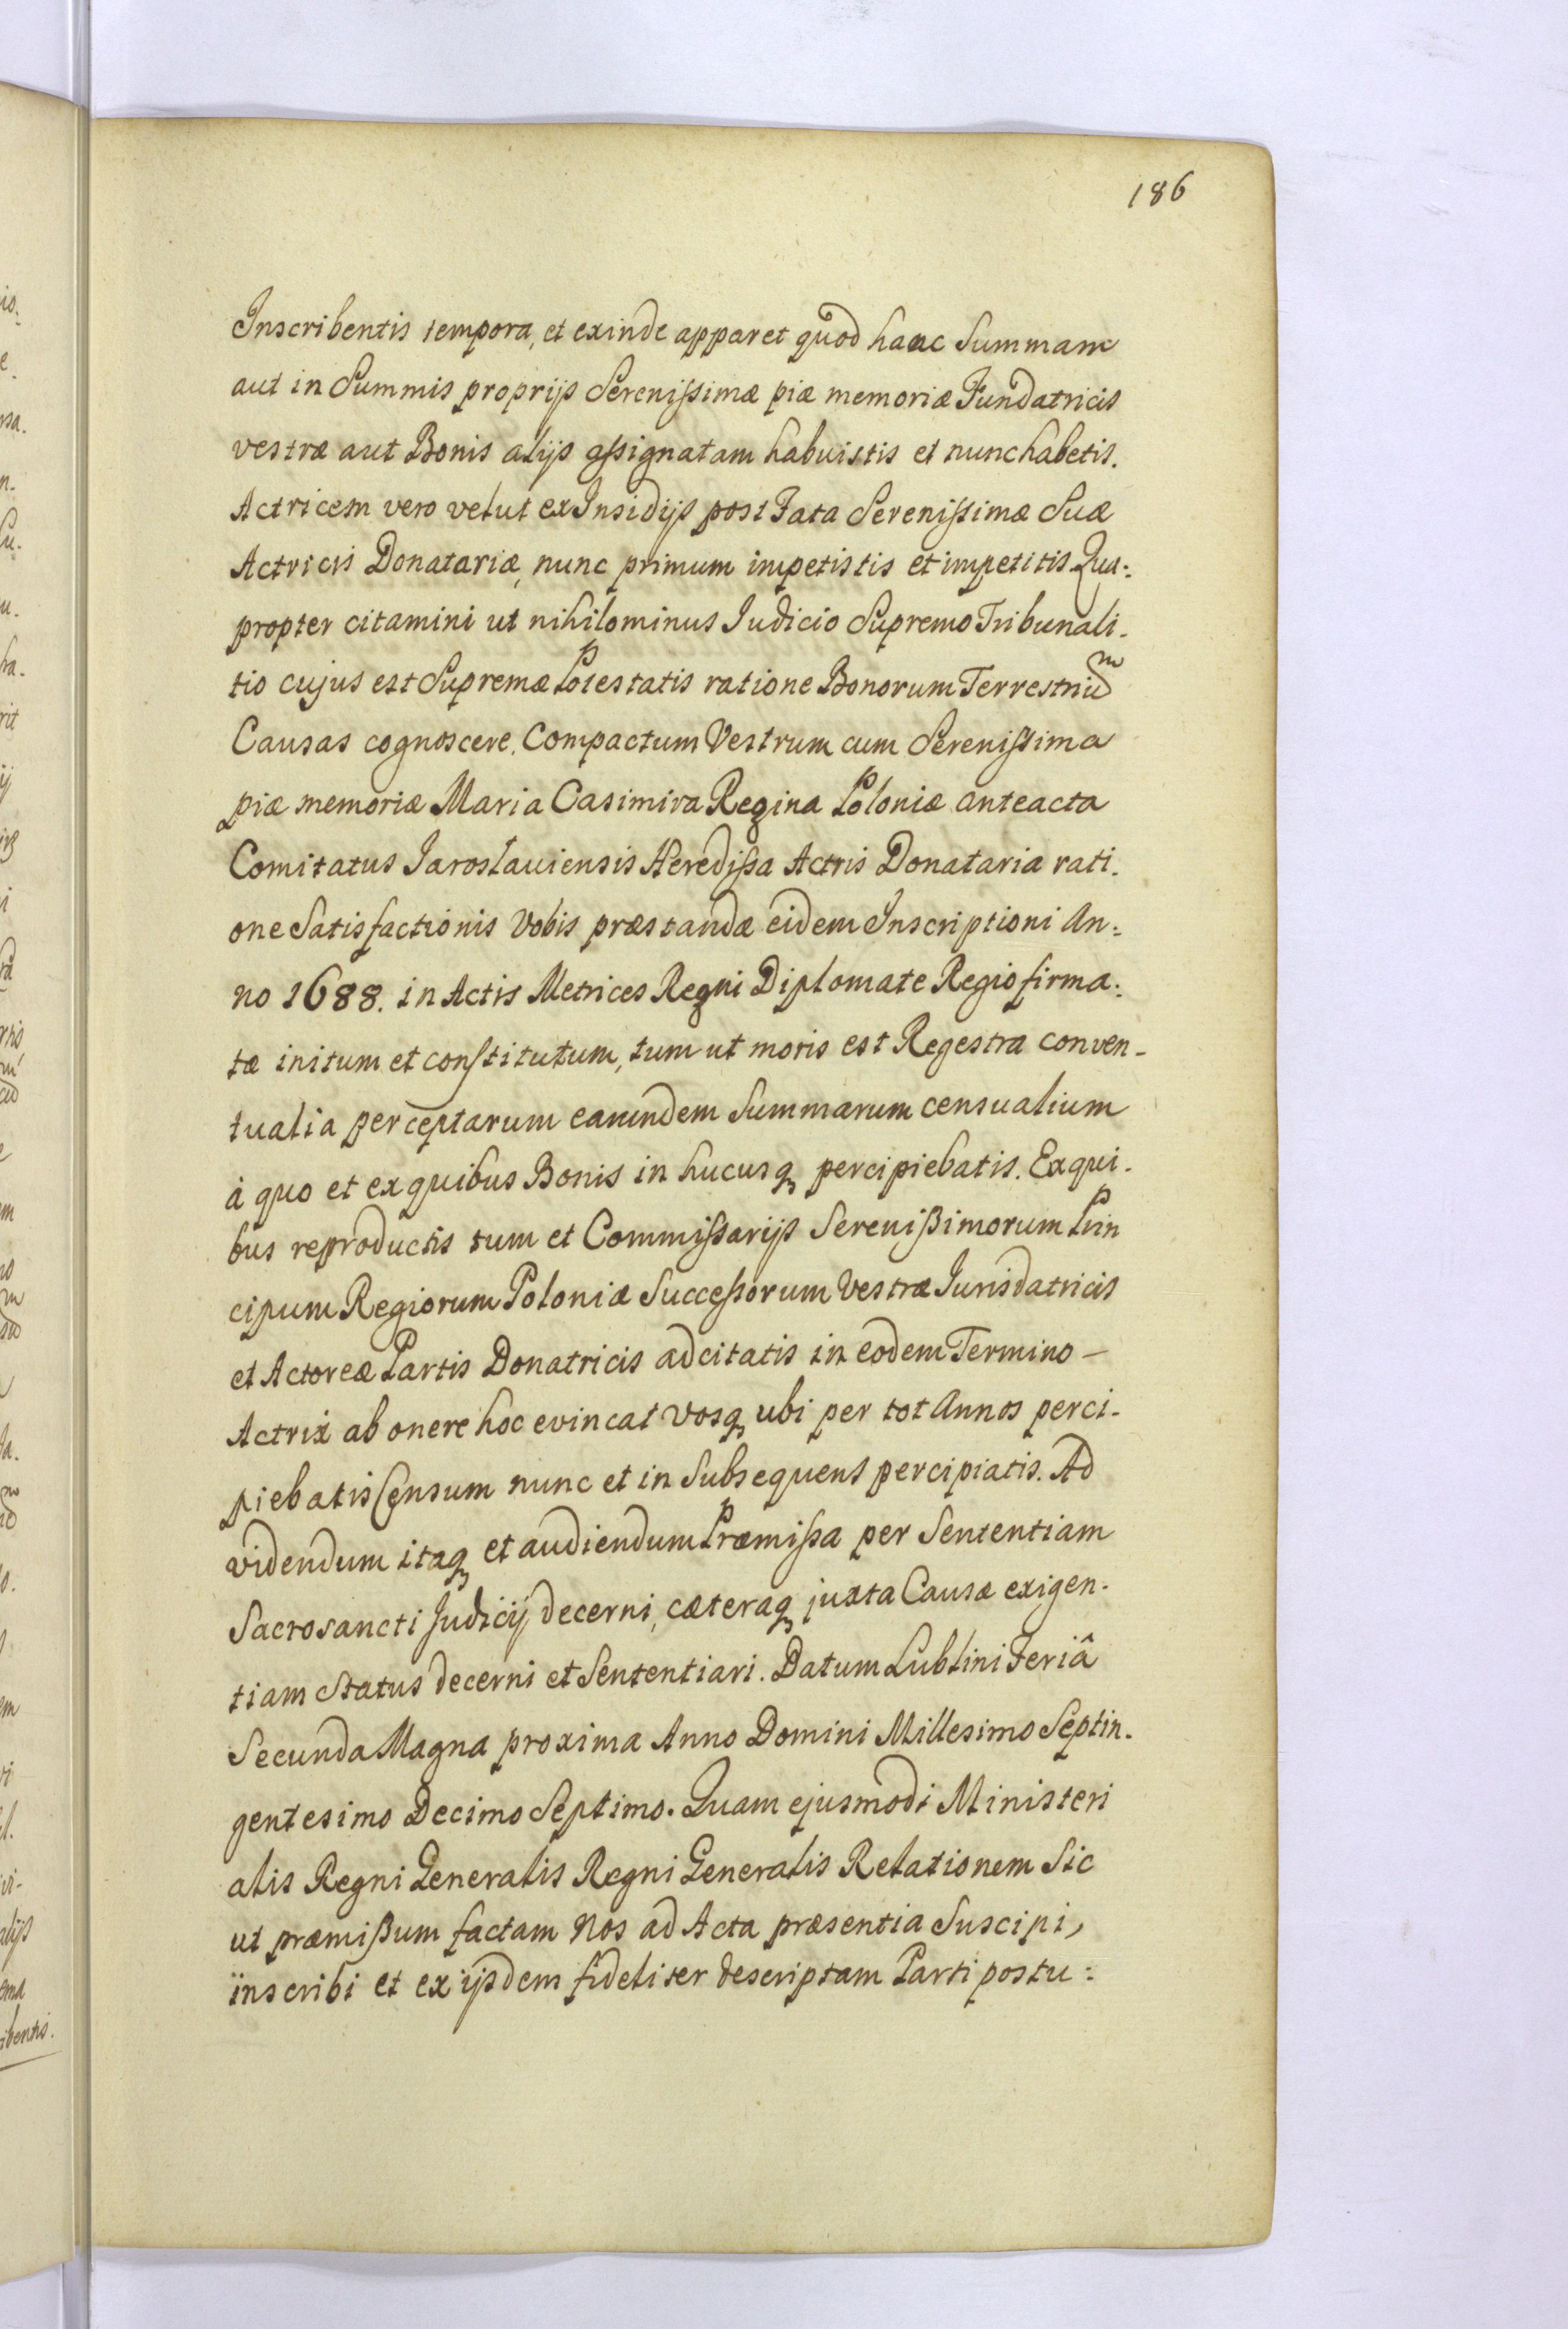 186
Inscribentis tempora, et exinde apparet quod hanc Summam
aut in Summis proprijs Serenissimæ piæ memoriæ Fundatricis
vestræ aut Bonis alijs assignatam habuistis et nunc habetis.
Actricem vero velut ex Insidijs post Fata Serenissimæ Suæ
Actricis Donatariæ, nunc primum impetistis et impetitis. Qua:
propter citamini ut nihilominus Iudicio Supremo Tribunali-
tio cujus est Supremæ Potestatis ratione Bonorum Terrestriũm
Causas cognoscere. Compactum Vestrum cum Serenissima
piæ memoriæ Maria Casimira Regina Poloniæ anteacta
Comitatus Iaroslaviensis Heredissa Actris Donataria rati.
one Satisfactionis Vobis præstandæ eidem Inscriptioni An:
no 1688. in Actis Metrices Regni Diplomate Regio firma:
tæ initum et constitutum, tum ut moris est Regestra conven-
tualia perceptarum earundem Summarum censualium
à quo et ex quibus Bonis in hucusq percipiebatis. Ex qui-
bus reproductis tum et Commissarijs Serenißimorum Prin
cipum Regiorum Poloniæ Successorum Vestræ Iurisdatricis
et Actoreæ Partis Donatricis adcitatis in eodem Termino –
Actrix ab onere hoc evincat vosq ubi per tot Annos perci-
piebatis Censum nunc et in Subsequens percipiatis. Ad
videndum itaq et audiendum Præmissa per Sententiam
Sacrosancti Judicij decerni, cæteraq juxta Causæ exigen-
tiam Status decerni et Sententiari. Datum Lublini Feriâ
Secunda Magna proxima Anno Domini Millesimo Septin-
gentesimo Decimo Septimo. Quam ejusmodi Ministeri
alis Regni Generalis Regni Generalis Relationem Sic
ut præmißum factam Nos ad Acta præsentia Suscipi,
inscribi et ex ijsdem fideliter descriptam Parti postu: